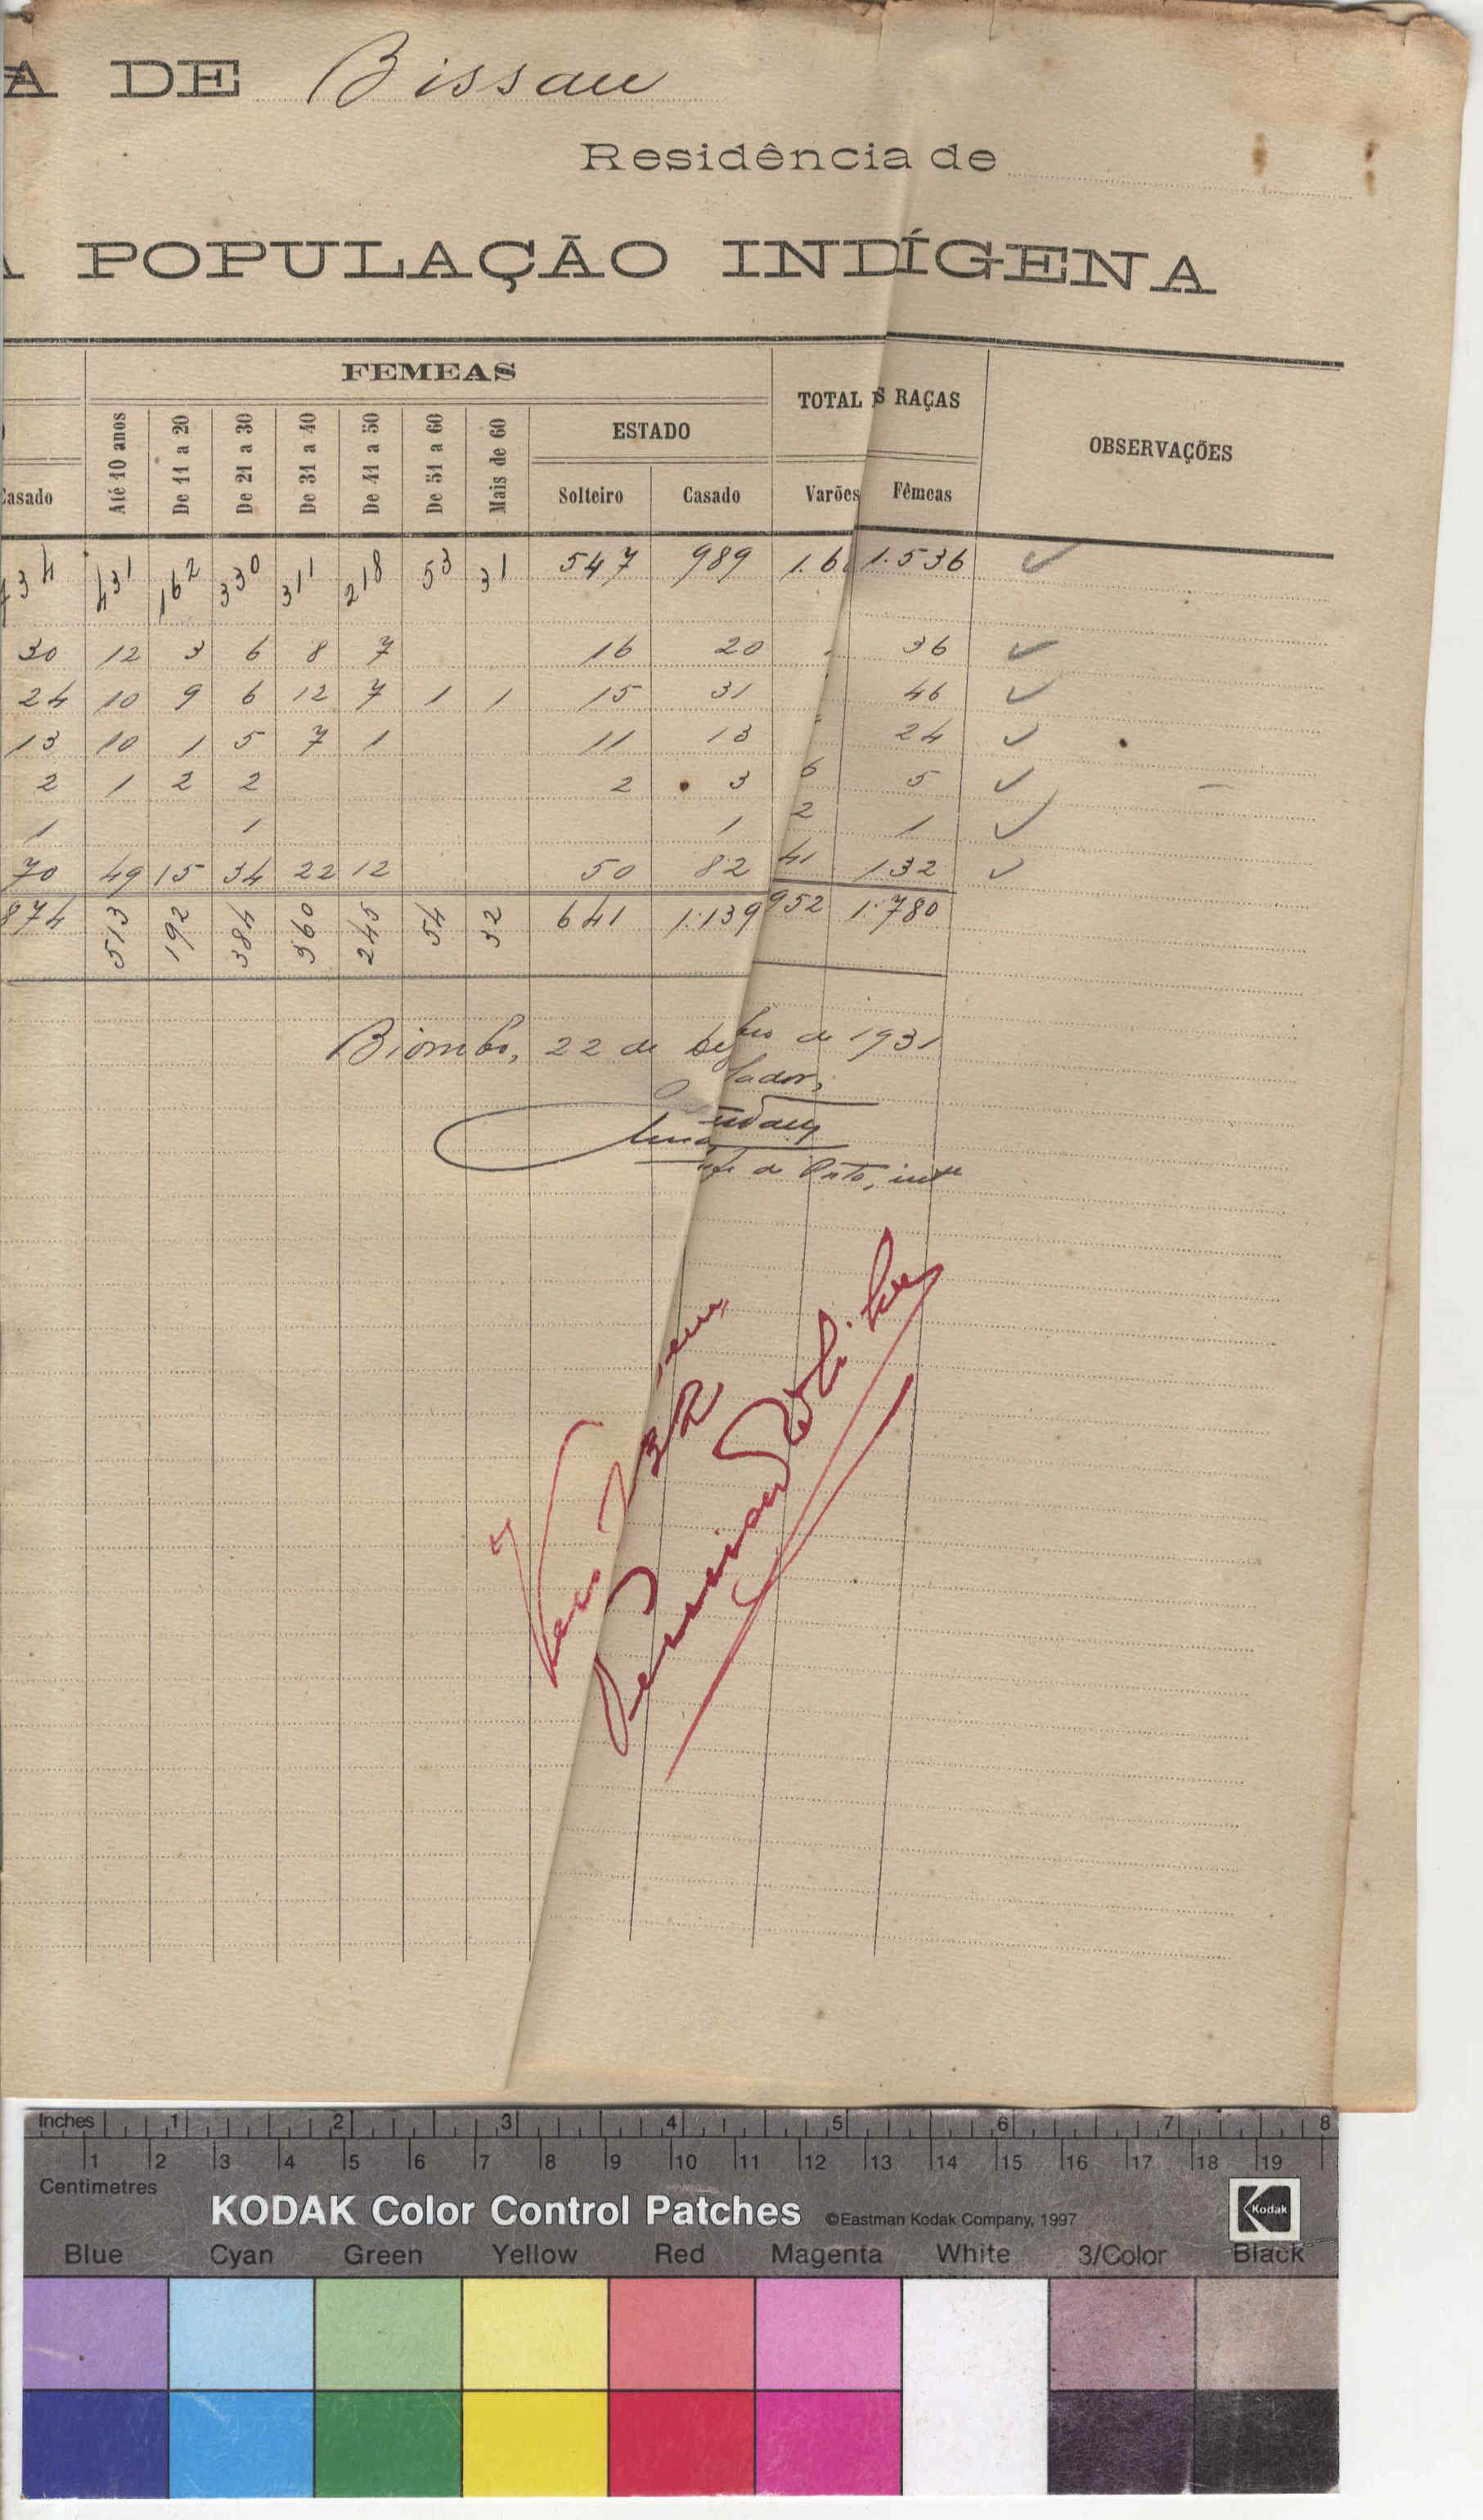 A DE Bissau
Residência de
POPULAÇÃO INDÍGENA
FEMEAS
TOTAL S RAÇAS
OBSERVAÇÕES
Casado
Até 10 anos
De 11 a 20
De 21 a 30
De 31 a 40
De 41 a 50
De 51 a 60
Mais de 60
ESTADO
Solteiro Casado
Varões Fêmeas
434 431 162 330 311 218 53 31 547 989 1.6 1.536
30 12 3 6 8 7 16 20 36
24 10 9 6 12 7 1 1 15 31 46
13 10 1 5 7 1 11 13 24
2 1 2 2 2 3 6 5
1 1 1 2 1
70 49 15 34 22 12 50 82 41 132
874 513 192 384 360 245 54 32 641 1.139 952 1.780
Biombo, 22 de de 1931
lador,
de Pôsto, intº
Inches 1 2 3 4 5 6 7 8
1 2 3 4 5 6 7 8 9 10 11 12 13 14 15 16 17 18 19
Centimetres
KODAK Color Control Patches ©Eastman Kodak Company, 1997 Kodak
Blue Cyan Green Yellow Red Magenta White 3/Color Black